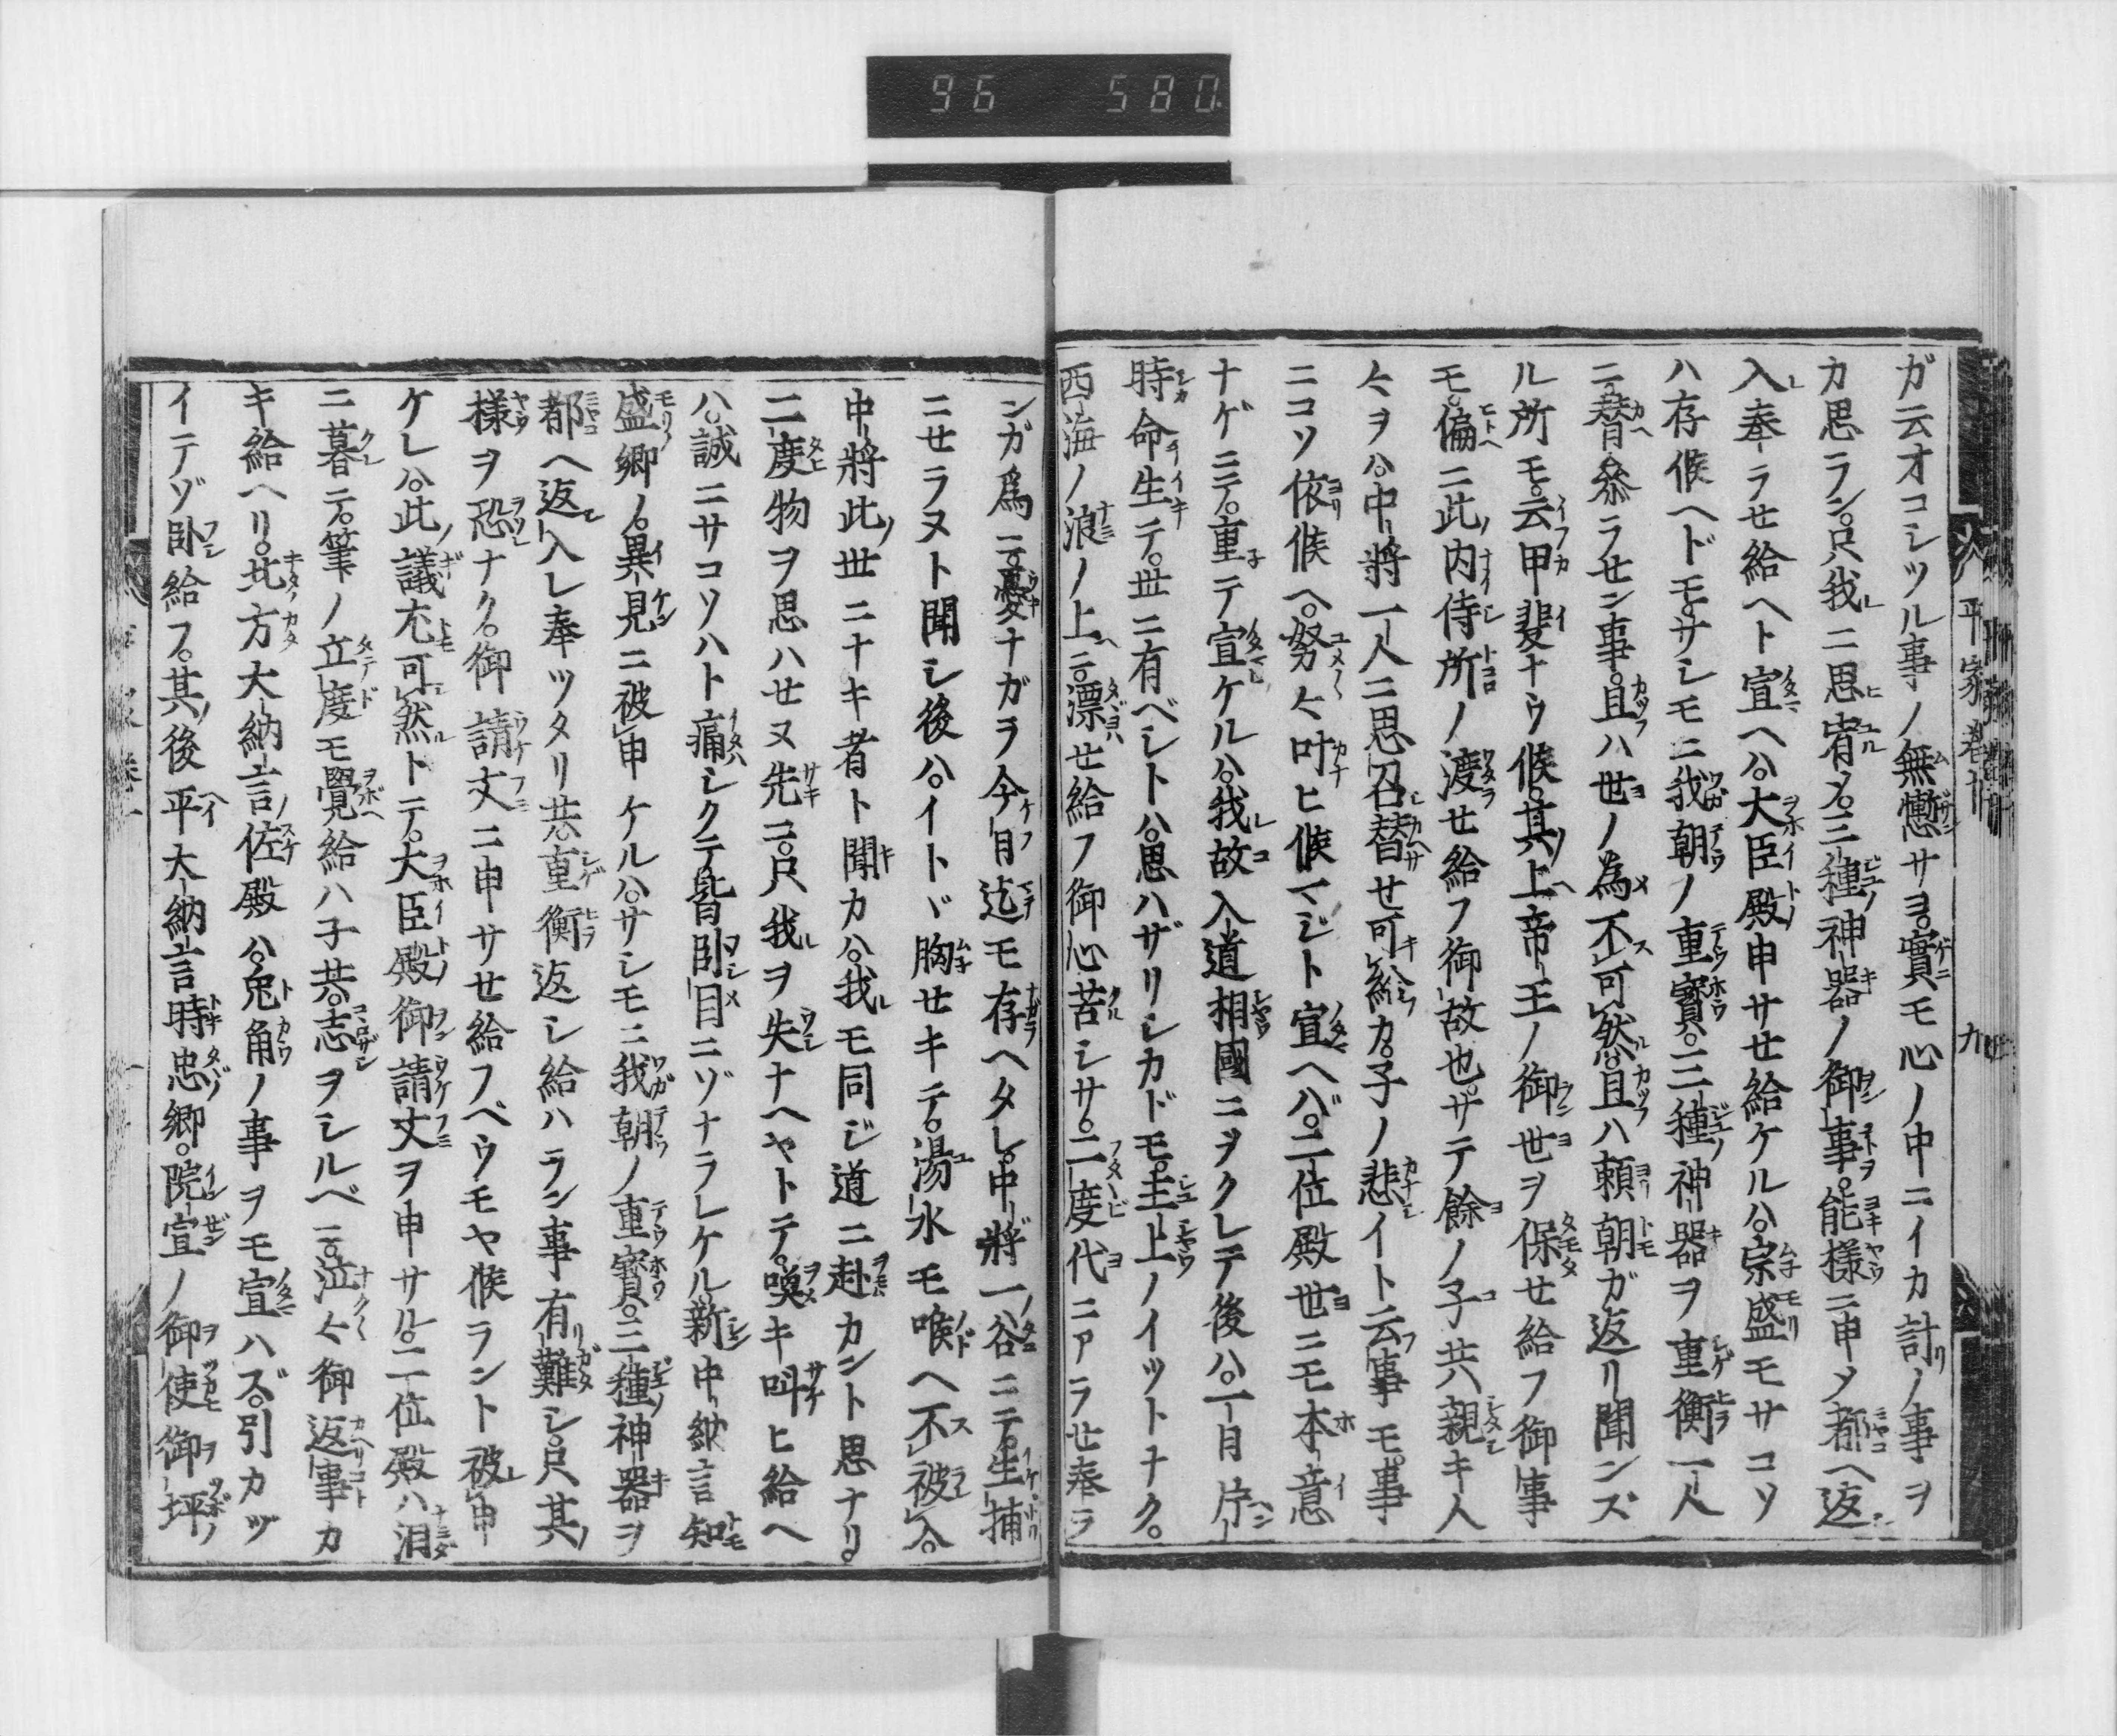 96 580
平家巻十 九
ガ云オコシツル事ノ無慙サヨ。實モ心ノ中ニイカ計ノ事ヲ
カ思ラン。只我ニ思宥メ。三種神器ノ御事ヲ。能様ニ申メ都ヘ返
入奉ラせ給ヘト宣ヘハ。大臣殿申サせ給ケルハ。宗盛モサコソ
ハ存候ヘドモ。サシモニ我朝ノ重寳。三種神器ヲ重衡一人
ニ替参ラせン事。且ハ世ノ為不可然。且ハ頼朝ガ返リ聞ンズ
ル所モ。云甲斐ナウ候。其上帝王ノ御世ヲ保せ給フ御事
モ。偏ニ此内侍所ノ渡せ給フ御故也。サテ餘ノ子共親キ人
々ヲハ。中將一人ニ思召替せ可給カ。子ノ悲イト云事モ。事
ニコソ依候ヘ。努々叶ヒ候マジト宣ヘバ。二位殿世ニモ本意
ナゲニテ。重テ宣ケルハ。我故入道相國ニヲクレテ後ハ。一日片
時命生テ。世ニ有ベシトハ。思ハザリシカドモ。主上ノイツトナク。
西海ノ浪ノ上ニ漂せ給フ御心苦シサ。二度代ニアラせ奉ラ
ンガ爲ニ。憂ナガラ今日迄モ存ヘタレ。中將一谷ニテ。生捕
ニせラヌト聞シ後ハ。イトヾ胸せキテ。湯水モ喉ヘ不被入。
中將此世ニナキ者ト聞カハ。我モ同ジ道ニ赴カント思ナリ。
二度物ヲ思ハせヌ先ニ。只我ヲ失ナヘヤトテ。喚キ叫ヒ給ヘ
ハ。誠ニサコソハト痛シクテ。皆臥目ニゾナラレケル。新中納言知
盛卿ノ。異見ニ被申ケルハ。サシモニ我朝ノ重寳。三種神器ヲ
都ヘ返入レ奉ツタリ共。重衡返シ給ハラン事有難シ。只其
様ヲ恐ナク。御請文ニ申サせ給フベウモヤ候ラント被申
ケレハ。此議尤可然トテ。大臣殿御請文ヲ申サル。二位殿ハ泪
ニ暮テ。筆ノ立度モ覺給ハ子共。志ヲシルベニ。泣々御返事カ
キ給ヘリ。北方大納言佐殿ハ。兎角ノ事ヲモ宣ハズ。引カヅ
イテゾ臥給フ。其後平大納言時忠卿。院宣ノ御使御坪ノ